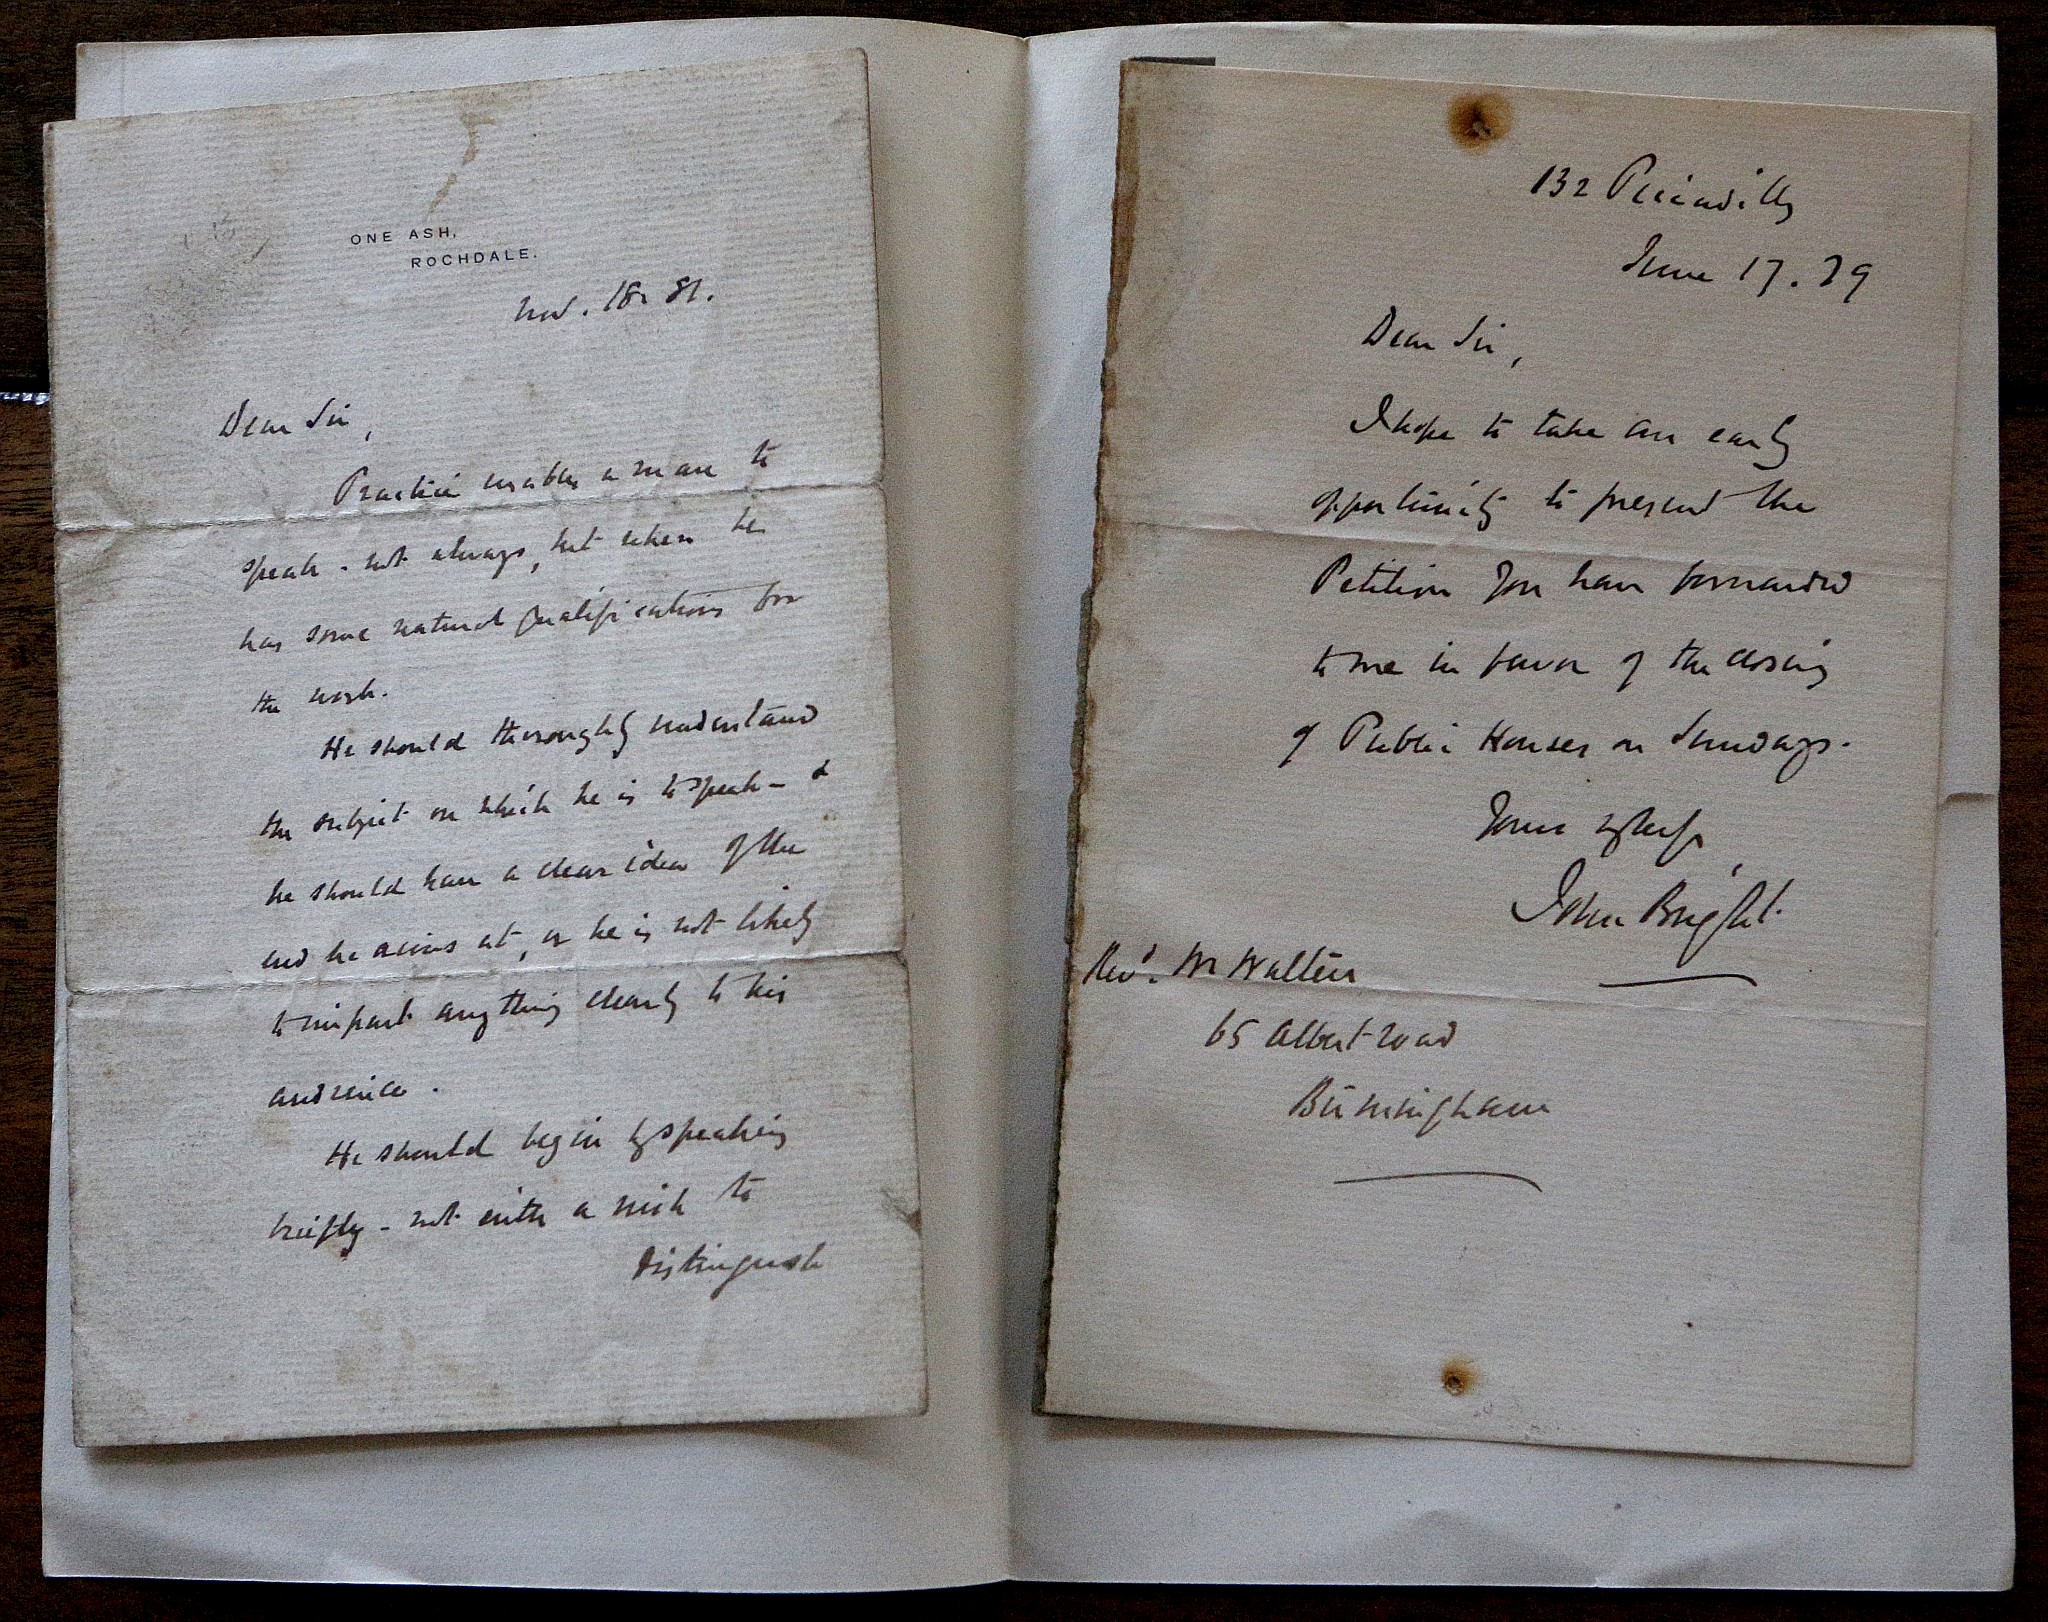 ONE ASH,
ROCHDALE.
Nov. 18. 81.
Dear Sir,
Practice enables a man to
speak - not always, but when he
has some natural qualifications for
the work.
He should thoroughly understand
the subject on which he is to speak - &
he should have a clear idea of the
end he aims at, or he is not likely
to impart anything clearly to his
audience.
He should begin by speaking
briefly - not with a wish to
distinguish
132 Piccadilly
June 17. 79
Dear Sir,
I hope to take an early
opportunity to present the
Petition you have forwarded
to me in favor of the closing
of Public Houses on Sundays.
Yours
John Bright.
Revd. M Walters
65 Albert Road
Birmingham